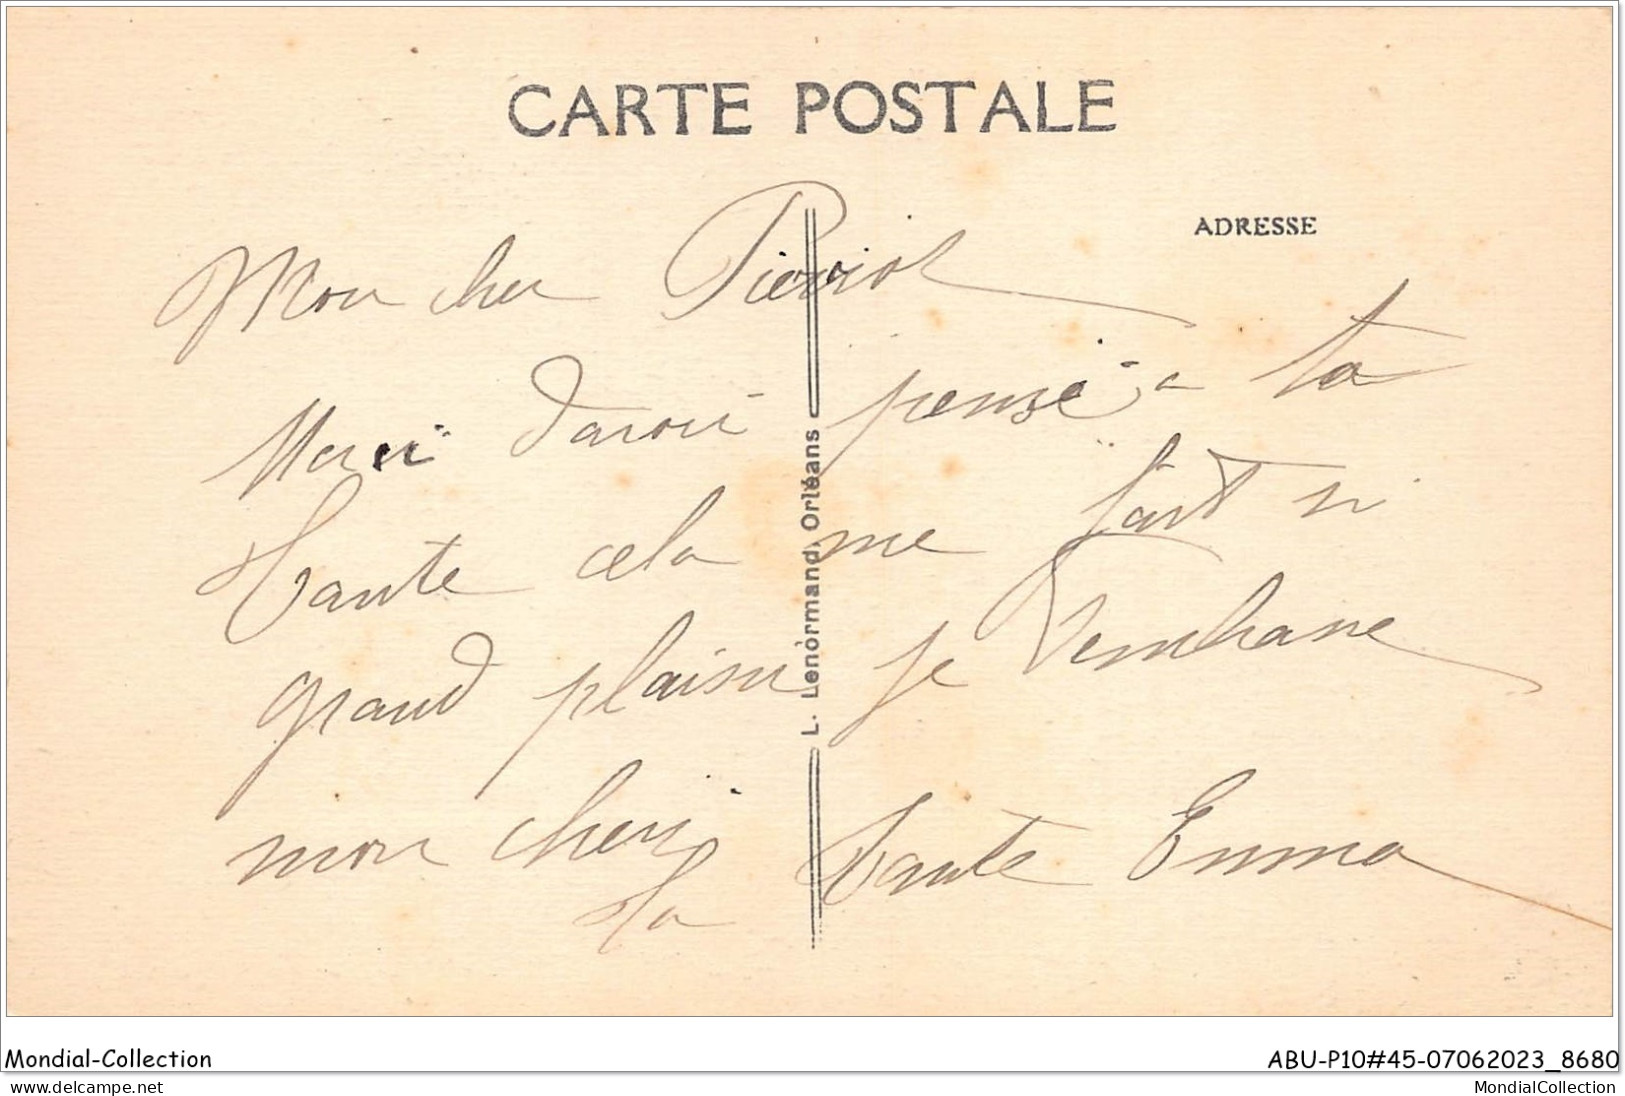 CARTE POSTALE
ADRESSE
Mon cher Pierrot
Merci d'avoir pensé a ta
Tante cela me fait si
grand plaisir je t'embrasse
mon cheri
Ta Tante Emma
L. Lenormand, Orléans
Mondial-Collection
ABU-P10#45-07062023_8680
delcampe.net
MondialCollection